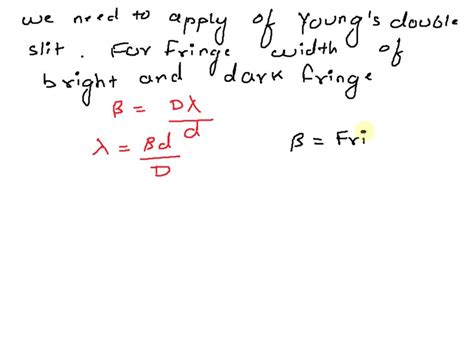 we need to apply of Young's double
slit. For fringe width of
bright and dark fringe
β = Dλ/d
λ = Bd/D
β = Fri